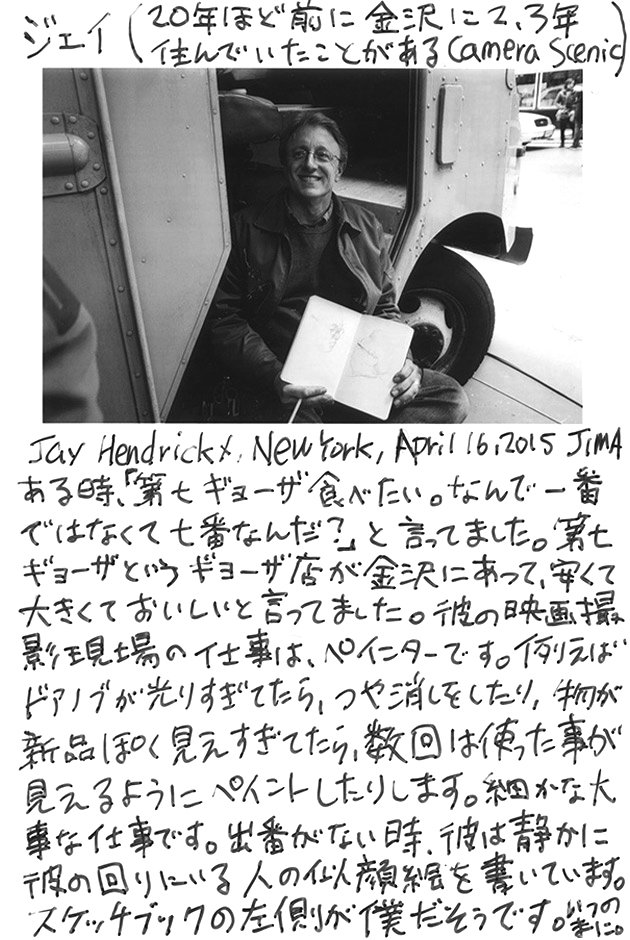 ジェイ (20年ほど前に金沢に2、3年
住んでいたことがあるCamera Scenic)
Jay Hendrickx, New York, April 16, 2015 JIMA
ある時、「第七ギョーザ食べたい。なんで一番
ではなくて七番なんだ?」と言ってました。第七
ギョーザというギョーザ店が金沢にあって、安くて
大きくておいしいと言ってました。彼の映画撮
影現場の仕事は、ペインターです。例えば
ドアノブが光りすぎてたら、つや消しをしたり、物が
新品ぽく見えすぎてたら、数回は使った事が
見えるようにペイントしたりします。細かな大
事な仕事です。出番がない時、彼は静かに
彼の回りにいる人の似顔絵を書いています。
スケッチブックの左側が僕だそうです。いつの
まに。